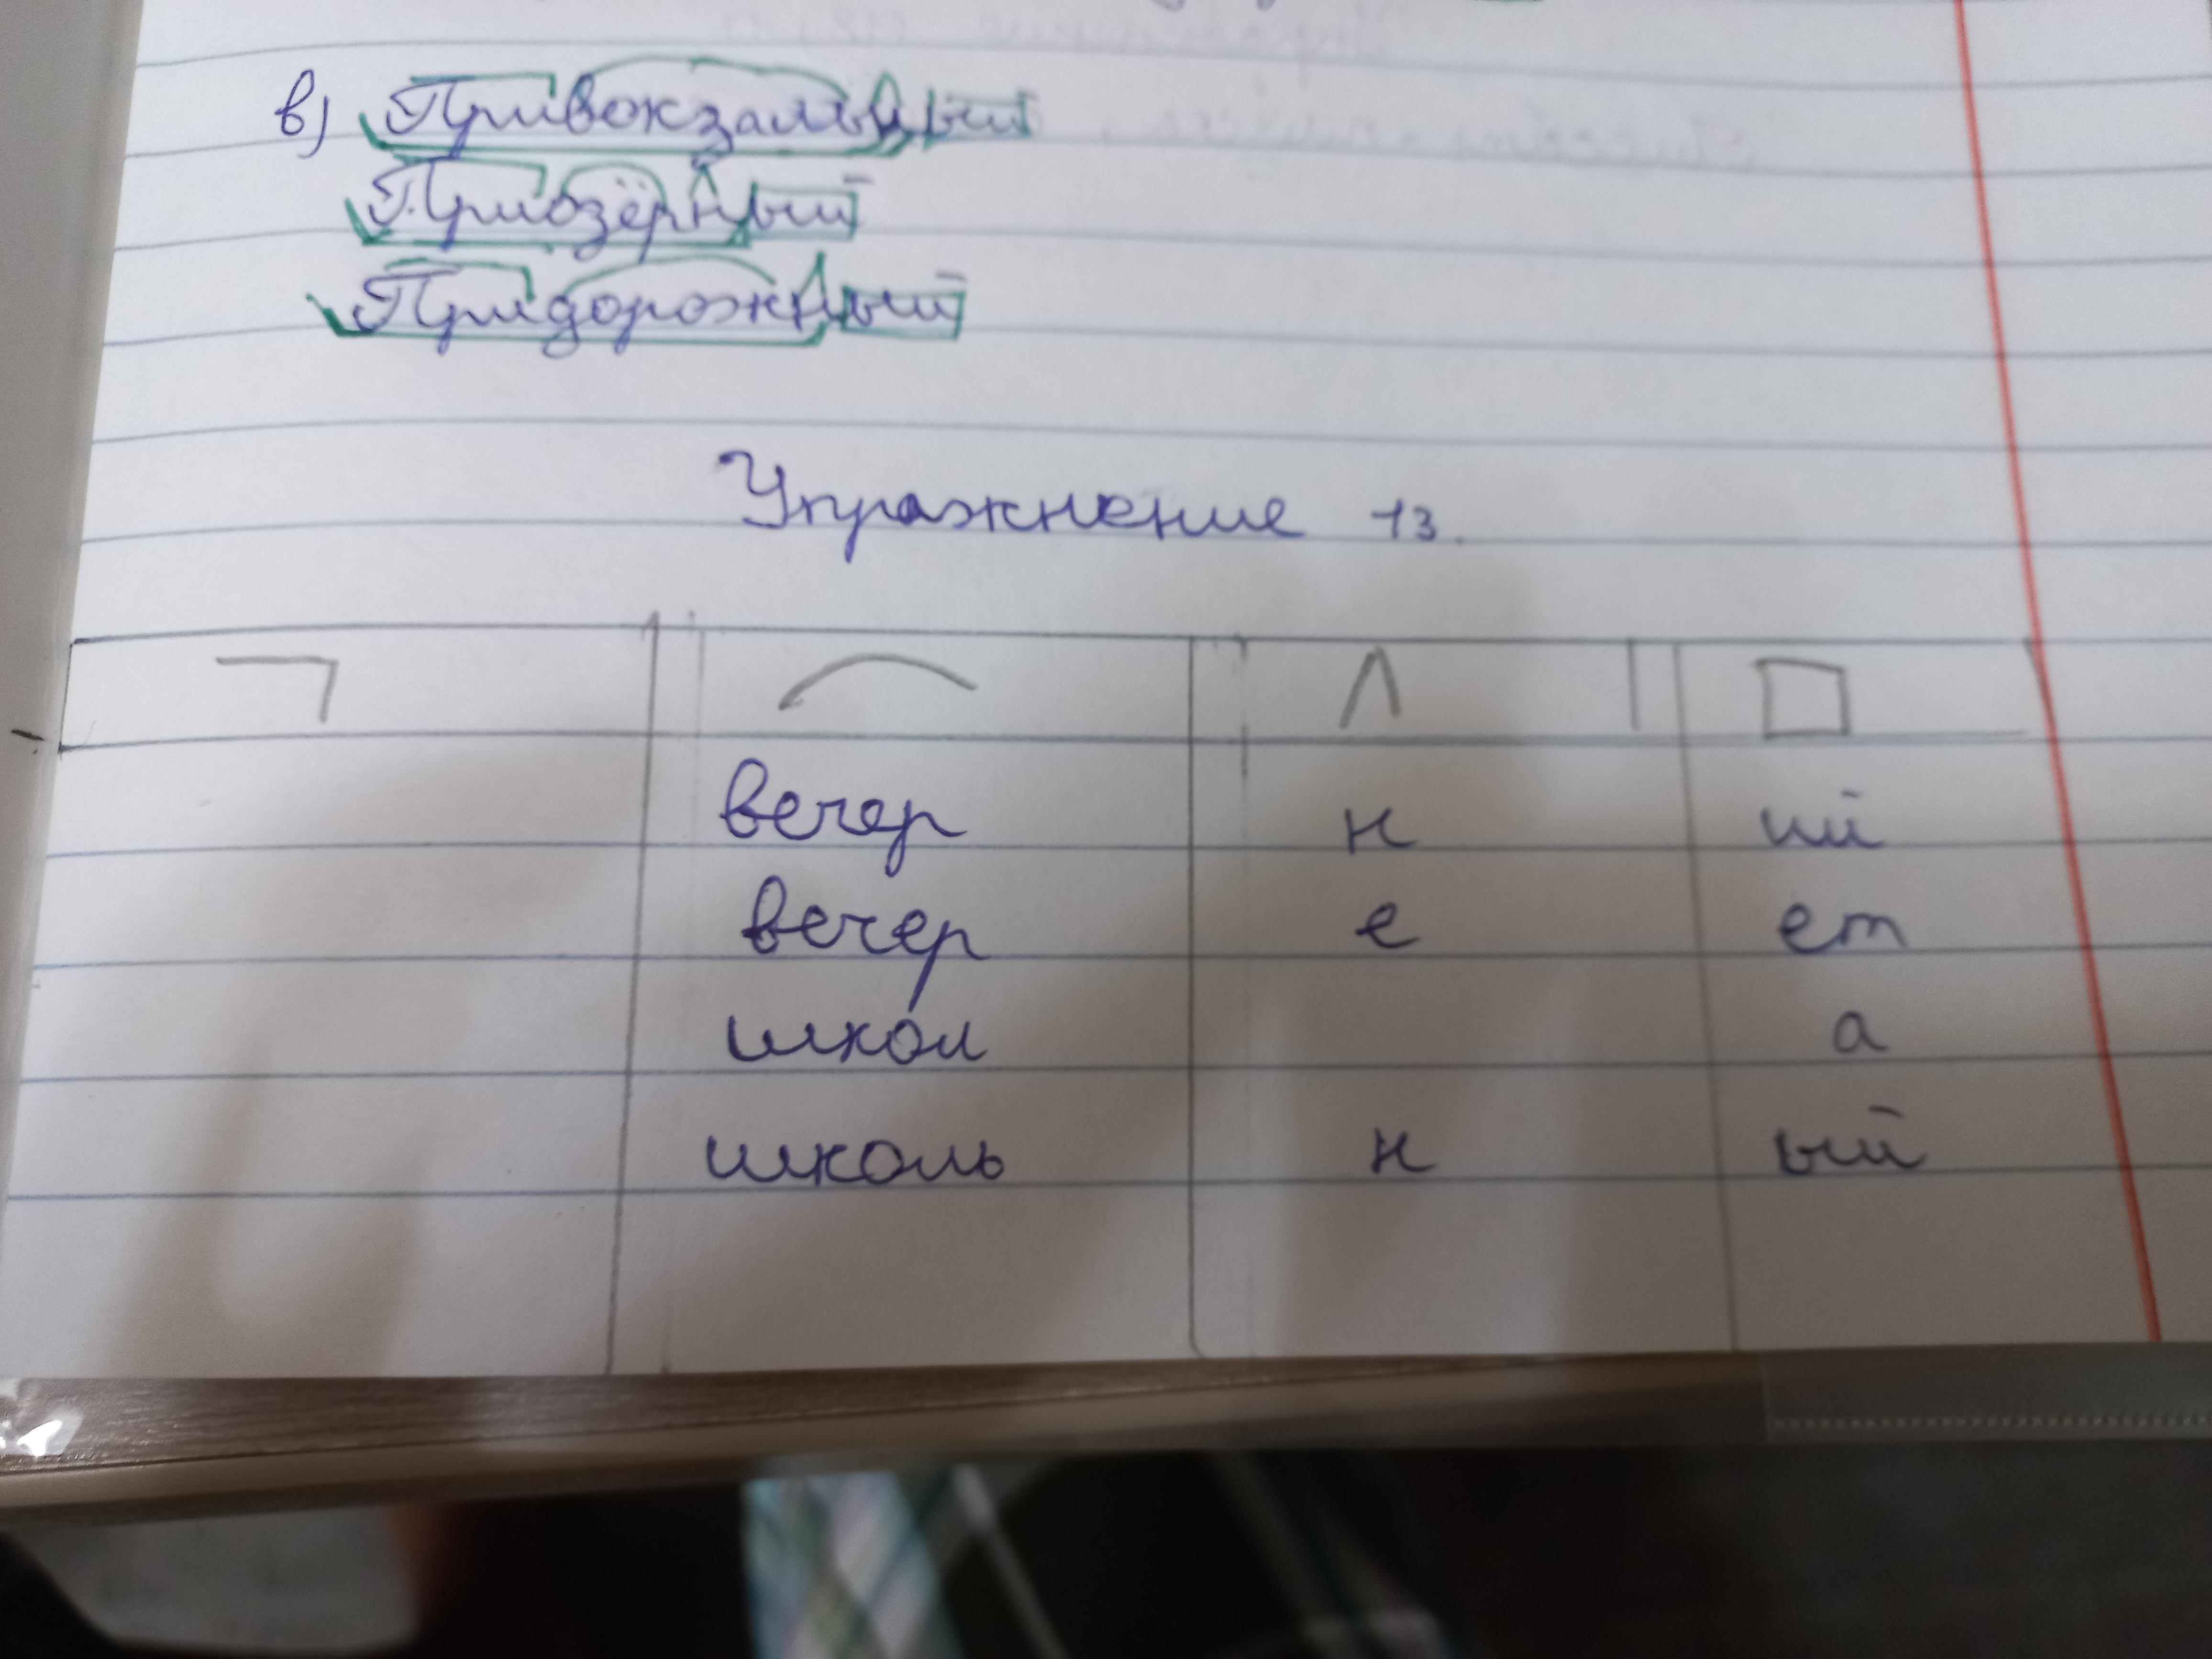 в) Привокзальный
Приозёрный
Придорожный
Упражнение 13.
вечер н ий
вечер е ет
школ а
школь н ый